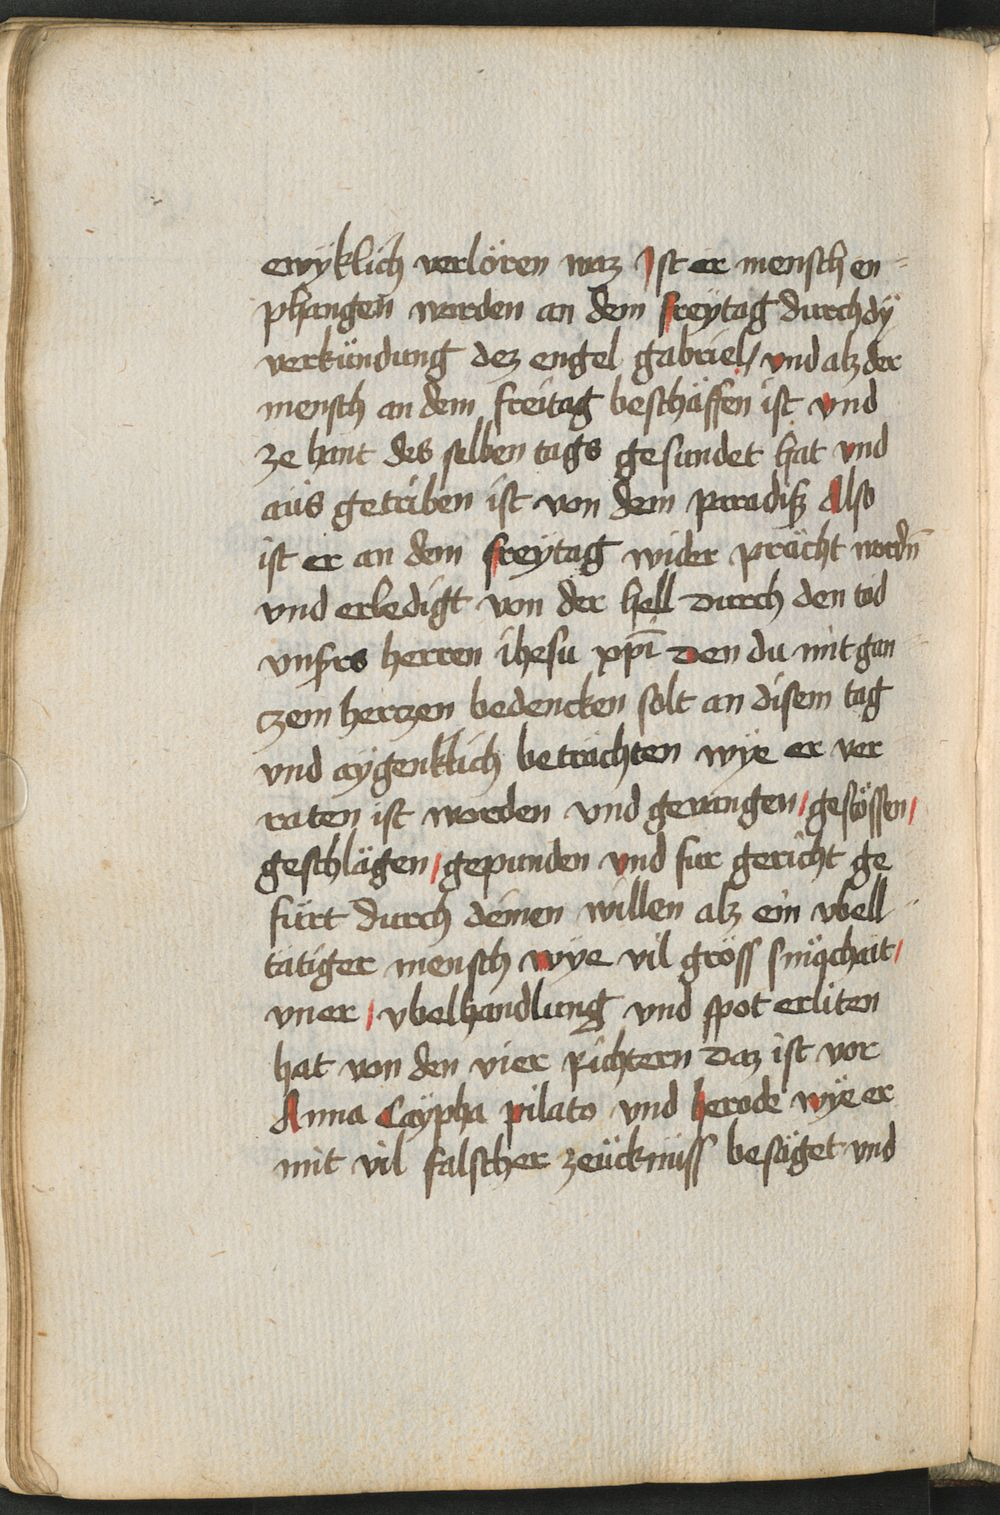 ewÿklich verlören waz Ist er mensch en-
phangen worden an dem freÿtag durch dÿ
verkündung dez engel gabriel / und alz der
mensch an dem freitag beschäffen ist und
ze hant des selben tags gesundet hat und
aüs getriben ist von dem paradisz Also
ist er an dem freÿtag wider prächt wordñ
vnd erledigt von der hell Durch den tod
vnsers herren ihesu xp̄i Den du mit gan
czem herczen bedencken solt an disem tag
vnd aÿgenklich beträchten wÿe er ver
raten ist worden und gevangen / gestössen /
geschlägen / gepunden und fur gericht ge
fürt durch deinen willen alz ein vbell-
tätiger mensch wÿe vil gröss smächait /
vner / vbelhandlung und spot erliten
hat von den vier richtern Daz ist vor
Anna Caÿpha pilato und herode wÿe er
mit vil falscher zeücknüss besäget und